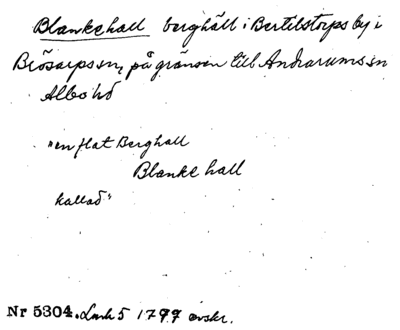 Blankehall berghäll i Bertilstorps by i
Brösarps sn, på gränsen till Andrarums sn
Albo hd
"en flat Berghall
Blanke hall
kallad"
Nr 5304. Lmh 5 1799 avskr.